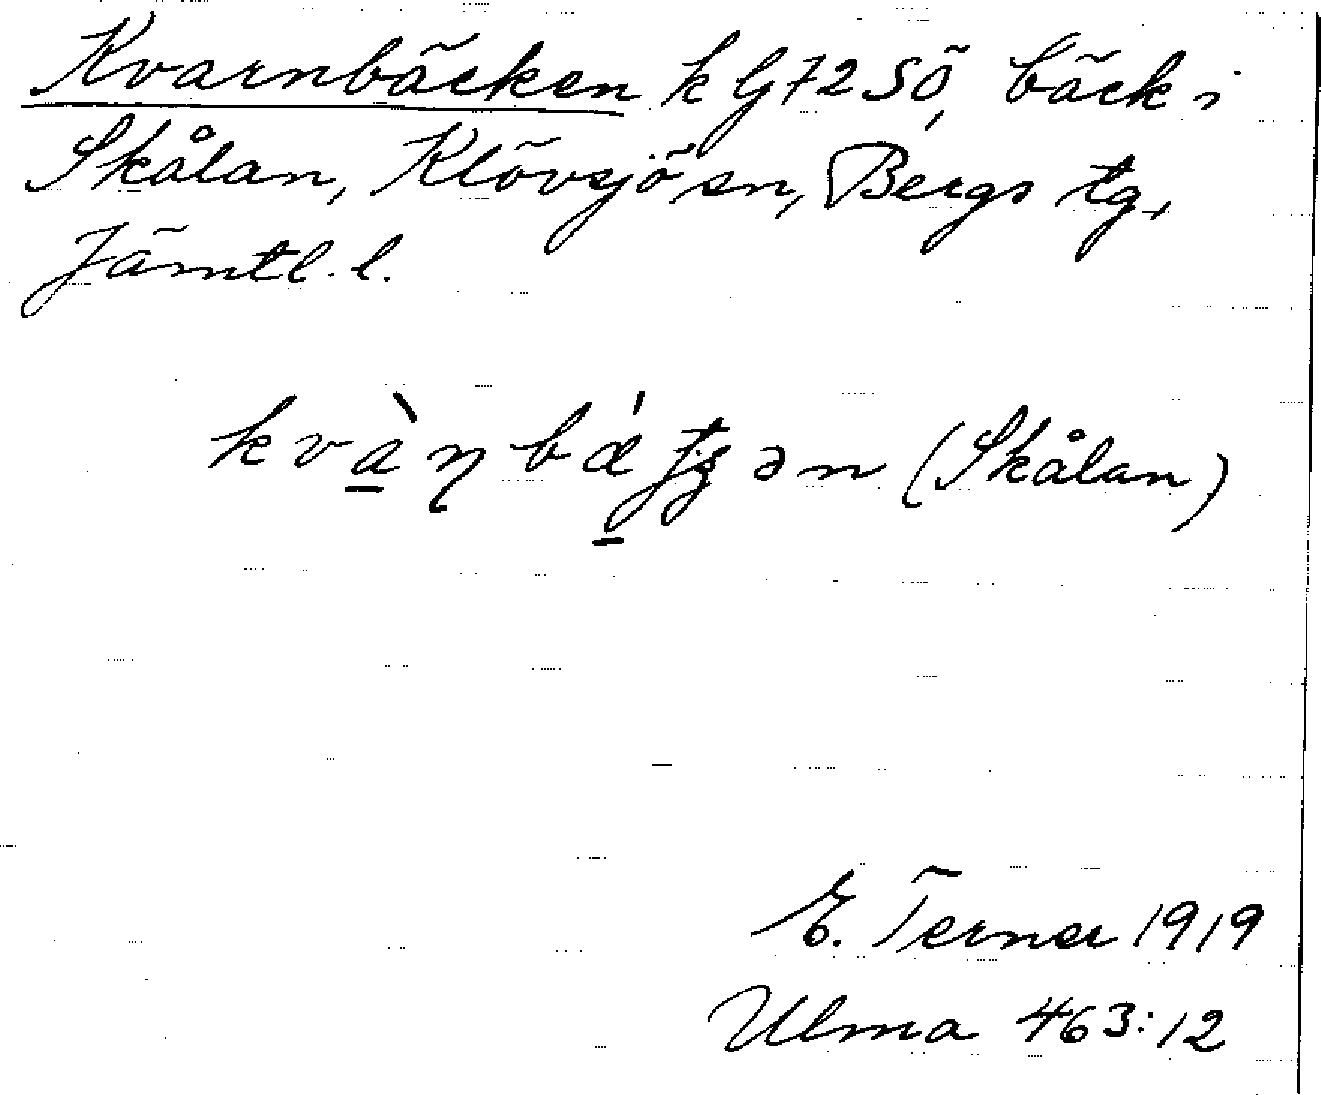 Kvarnbäcken k G72SÖ, bäck i
Skålan, Klövsjö sn, Bergs tg,
Jämtl. l.
(Skålan)
E. Terner 1919
Ulma 463:12